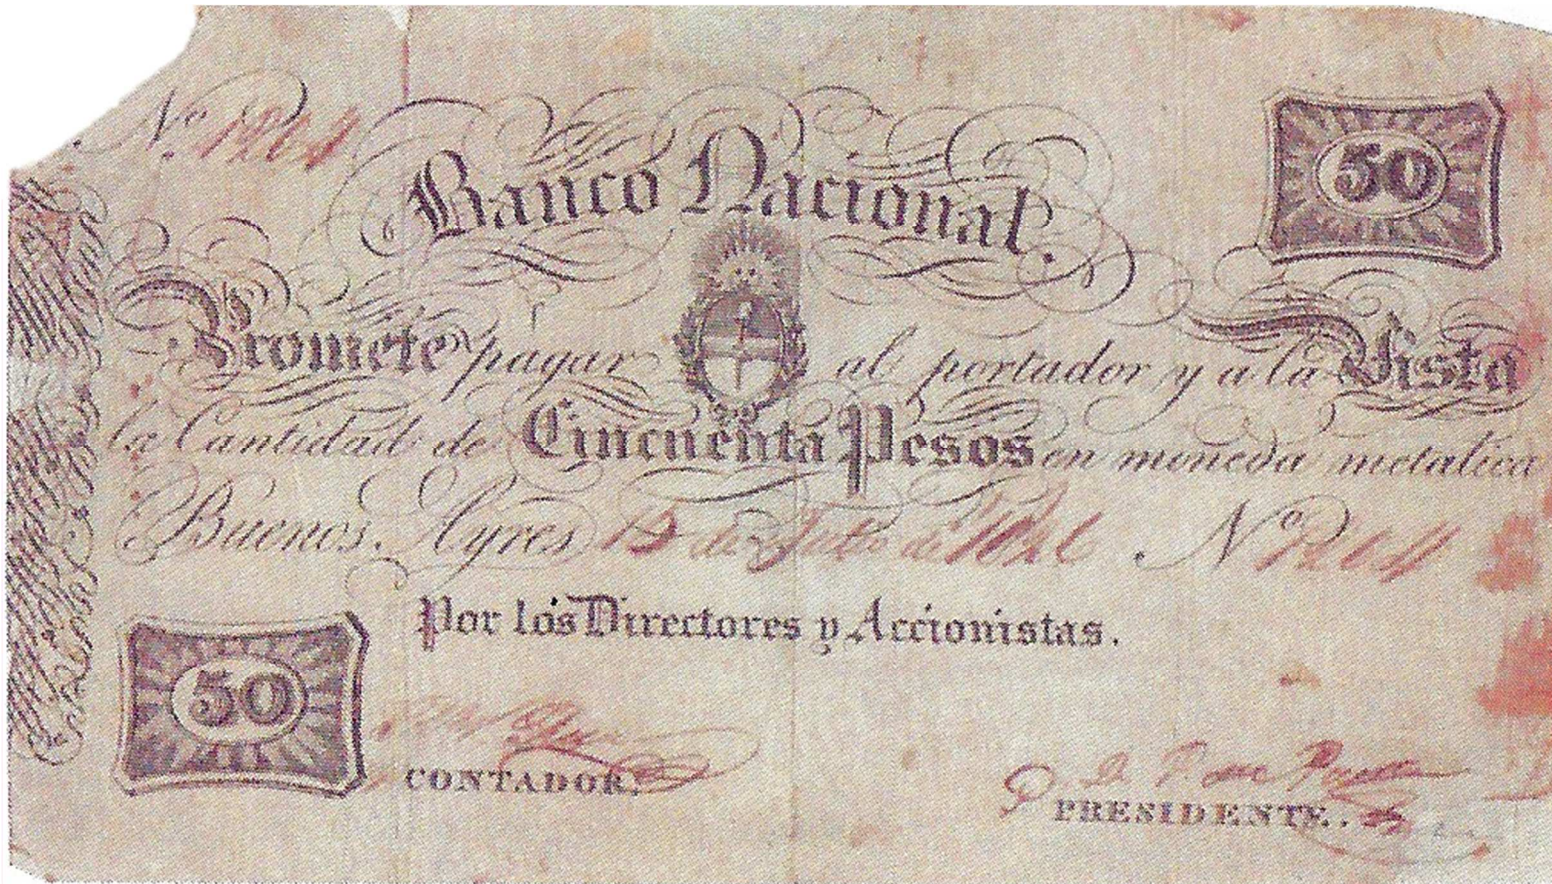 No. 1264
50
Banco Nacional.
Promete pagar al portador y a la Vista
la Cantidad de Cincuenta Pesos en moneda metalica
Buenos. Ayres 15 de Julio de 1826 No. 1264
Por los Directores y Accionistas.
50
CONTADOR.
PRESIDENTE.